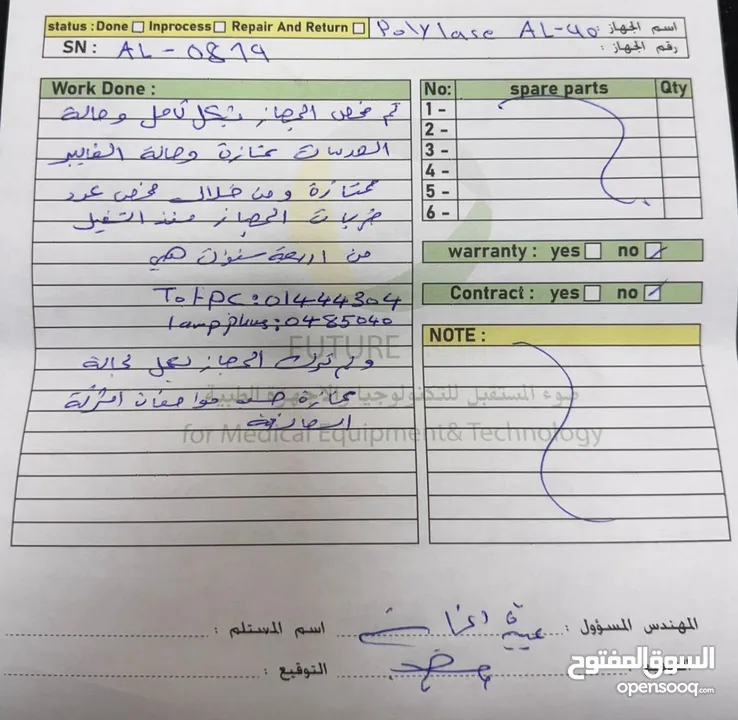 status : Done Inprocess Repair And Return Polylase AL-40 اسم الجهاز :
SN : AL - 0819 رقم الجهاز :
Work Done :
تم فحص الجهاز بشكل كامل وحالة
العدسات ممتازة وحالة الفايبر
ممتازة ومن خلال فحص عدد
ضربات الجهاز منذ التشغيل
من اربعة سنوات هي
Tot pc : 01444304
lamp plus : 0485040
وتم ترك الجهاز يعمل بحالة
ممتازة حسب مواصفات الشركة
No: spare parts Qty
1 -
2 -
3 -
4 -
5 -
6 -
warranty : yes no
Contract : yes no
NOTE :
FUTURE
ضوء المستقبل للتكنولوجيا والاجهزة الطبية
for Medical Equipment& Technology
المهندس المسؤول : اسم المستلم :
التوقيع :
السوق المفتوح
opensooq.com